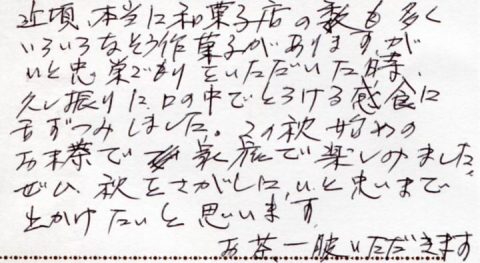 近頃、本当に和菓子店の数も多く
いろいろなそう作菓子がありますが
いと忠 巣ごもり をいただいた時、
久し振りに口の中でとろける感食に
舌ずつみしました。この秋 始めの
お抹茶で 菓 で楽しみました。
ぜひ、秋をさがしに、いと忠まで
出かけたいと思います。
お茶一服いただきます